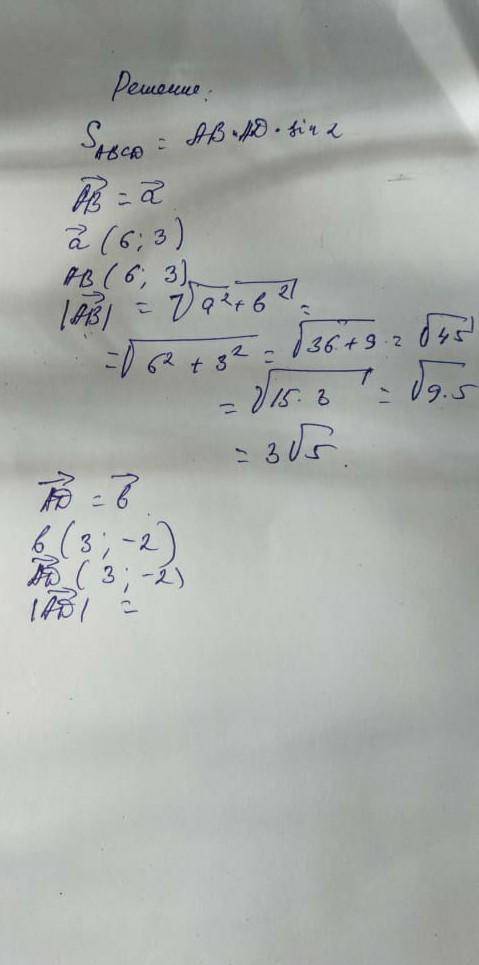 Решение:
S_ABCD = AB · AD · sin α
→AB = →a
→a (6; 3)
AB (6; 3)
|→AB| = √(a² + b²) =
= √(6² + 3²) = √(36 + 9) = √45
= √(15 · 3) = √(9 · 5)
= 3√5.
→AD = →b.
b (3; -2)
→AD (3; -2)
|→AD| =